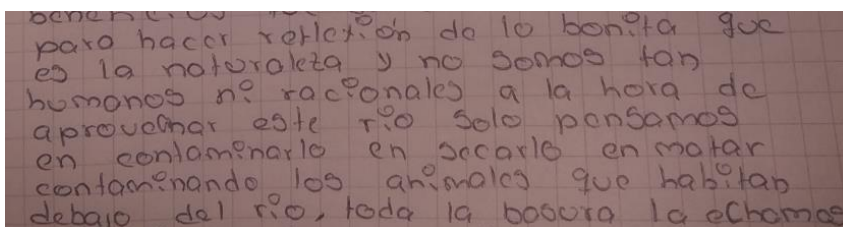 beneficios
para hacer reflexión de lo bonita que
es la naturaleza y no somos tan
humanos ni racionales a la hora de
aprovechar este río solo pensamos
en contaminarlo en secarlo en matar
contaminando los animales que habitan
debajo del río, toda la basura la echamos